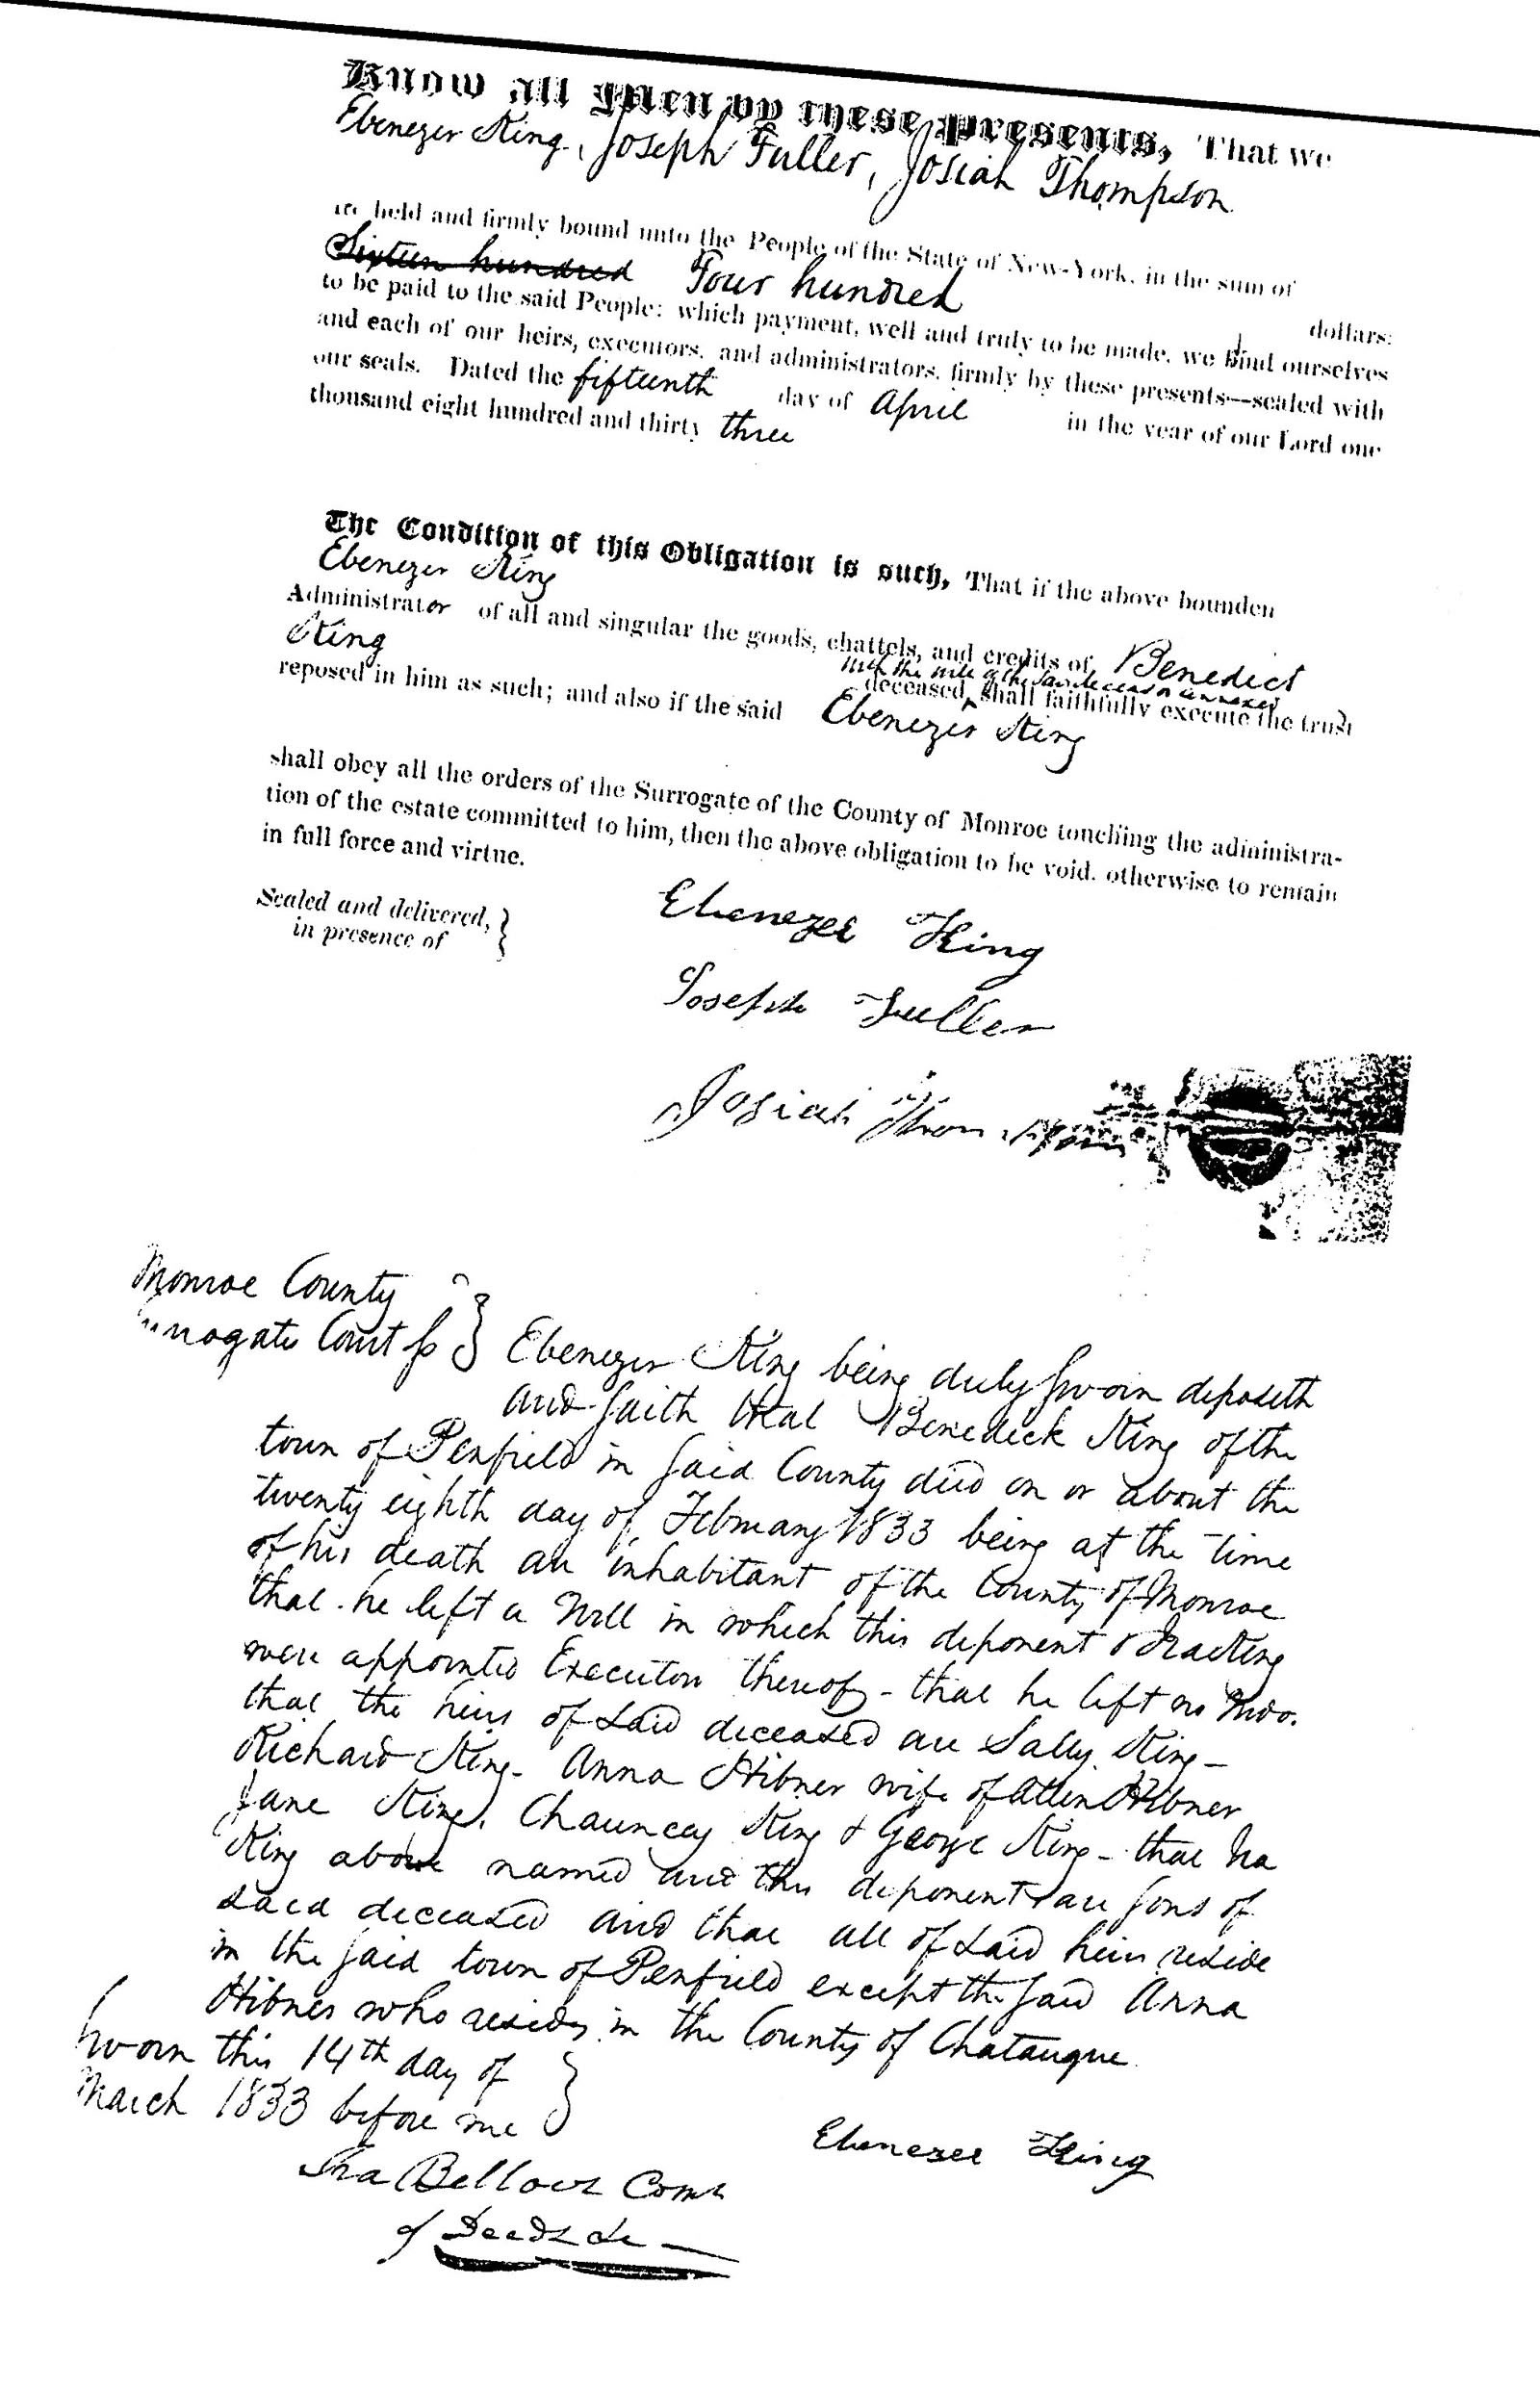 Know all Men by these Presents, That we
Ebenezer King, Joseph Fuller, Josiah Thompson
are held and firmly bound unto the People of the State of New-York, in the sum of
Sixteen hundred Four hundred dollars:
to be paid to the said People: which payment, well and truly to be made, we bind ourselves
and each of our heirs, executors, and administrators, firmly by these presents—sealed with
our seals. Dated the fifteenth day of April in the year of our Lord one
thousand eight hundred and thirty three
The Condition of this Obligation is such, That if the above bounden
Ebenezer King
Administrator of all and singular the goods, chattels, and credits of Benedict
with the will of the said deceased annexed
King deceased, shall faithfully execute the trust
reposed in him as such; and also if the said Ebenezer King
shall obey all the orders of the Surrogate of the County of Monroe touching the administra-
tion of the estate committed to him, then the above obligation to be void, otherwise to remain
in full force and virtue.
Sealed and delivered,
in presence of
Ebenezer King
Joseph Fuller
Josiah Thompson
Monroe County
Surrogate Court ss Ebenezer King being duly sworn deposeth
and saith that Benedick King of the
town of Penfield in said County died on or about the
twenty eighth day of February 1833 being at the time
of his death an inhabitant of the County of Monroe
that he left a Will in which this deponent & Ira King
were appointed Executors thereof - that he left no wido.
that the heirs of said deceased are Sally King -
Richard King - Anna Hibner wife of Allen Hibner
Jane King, Chauncey King & George King - that Ira
King above named and this deponent are sons of
said deceased and that all of said heirs reside
in the said town of Penfield except the said Anna
Hibner who resides in the County of Chatauque
Sworn this 14th day of
March 1833 before me
Ebenezer King
Ira Bellows Comr
of Deeds &c